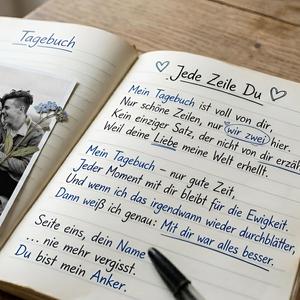 Tagebuch
Jede Zeile Du
Mein Tagebuch ist voll von dir,
Nur schöne Zeilen, nur wir zwei hier.
Kein einziger Satz, der nicht von dir erzäh
Weil deine Liebe meine Welt erhellt.
Mein Tagebuch – nur gute Zeit,
Jeder Moment mit dir bleibt für die Ewigkeit.
Und wenn ich das irgendwann wieder durchblätter,
Dann weiß ich genau: Mit dir war alles besser.
Seite eins, dein Name
... nie mehr vergisst.
Du bist mein Anker.